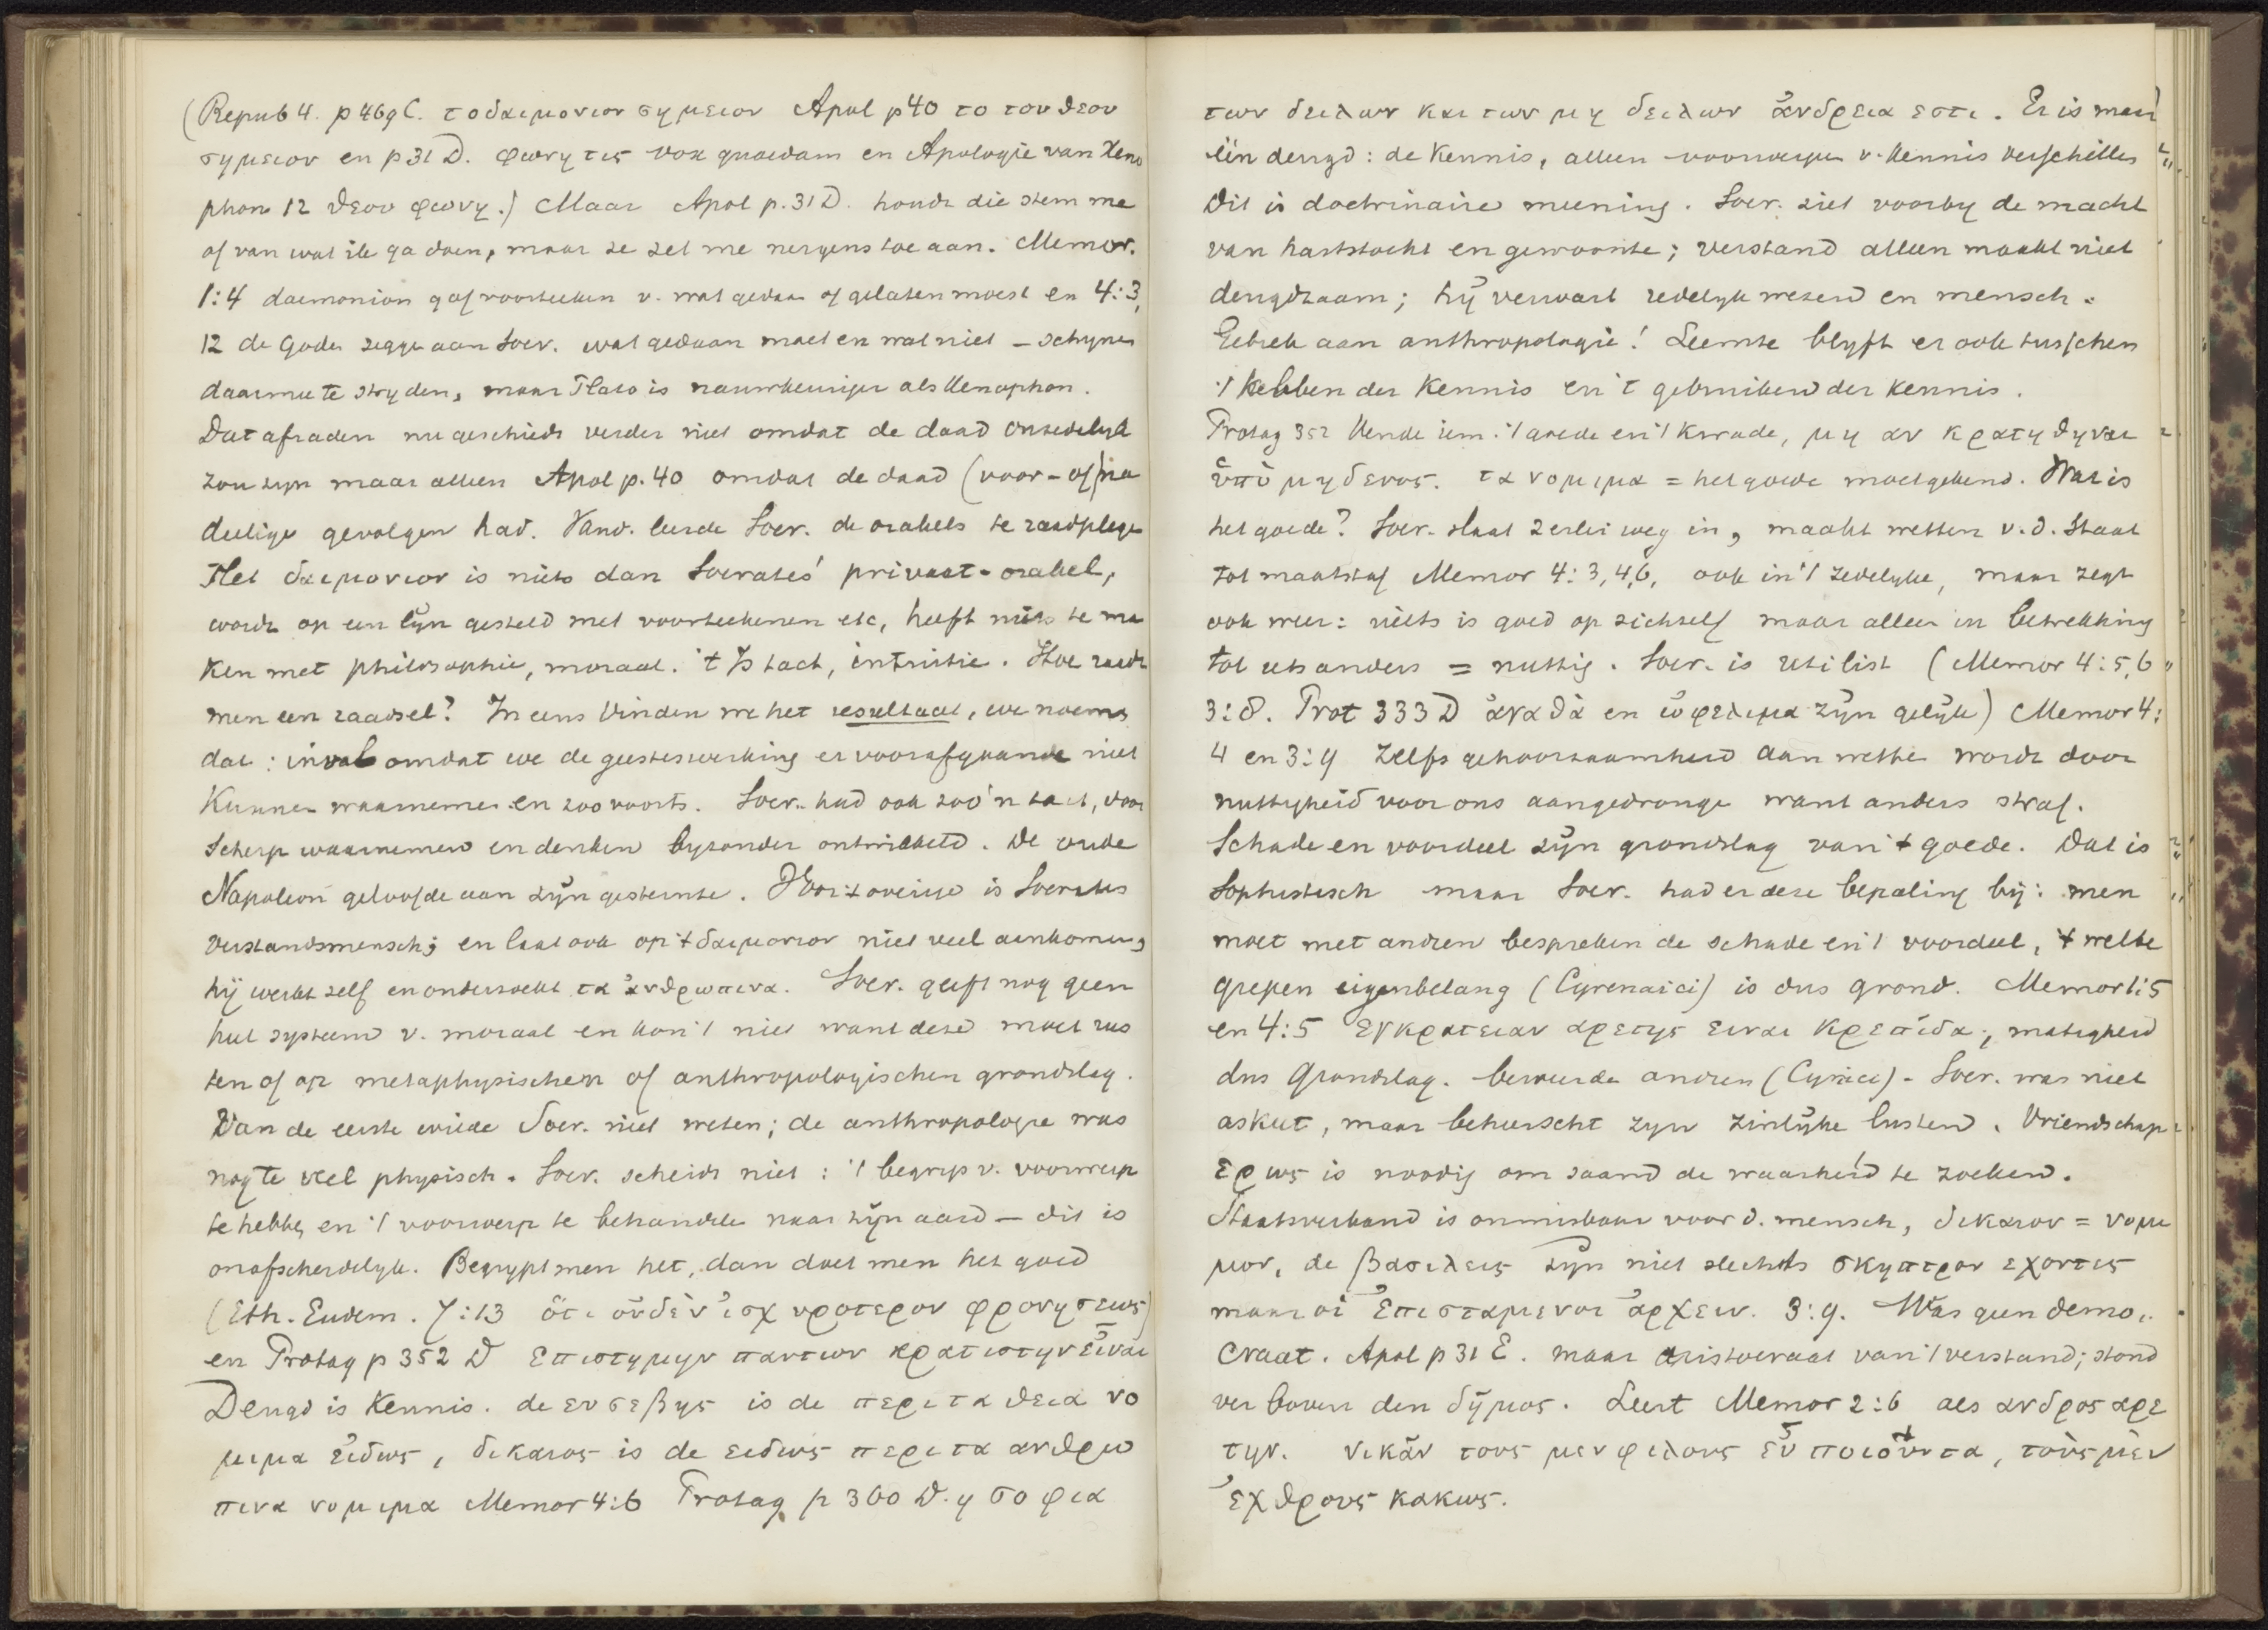 (Repub 4. p 469 C. το δαιμονιον σημειον Apol p 40 το του θεου
σημειον en p 31 D. φωνη τις vox quaedam en Apologie van Xeno
phon 12 θεου φωνη.) Maar Apol p. 31 D. houdt die stem me
af van wat ik ga doen, maar ze zet me nergens toe aan. Memor.
1:4 daemonion gaf voorteeken v. wat gedaan of gelaten moest en 4:3,
12 de Goden zeggen aan Socr. wat gedaan moet en wat niet – schynen
daarmee te stryden, maar Plato is nauwkeuriger als Xenophon.
Dat afraden nu geschiedt verder niet omdat de daad onzedelyk
zou zyn maar alleen Apol p. 40 omdat de daad (voor- of) na
deelige gevolgen had. Vand. leerde Socr. de orakels te raadplegen
Het δαιμονιον is niets dan Socrates' privaat-orakel,
wordt op een lijn gesteld met voorteekenen etc, heeft niets te ma
ken met philosophie, moraal. 't Is tact, intuitie. Hoe raadt
men een raadsel? In eens vinden we het resultaat, we noemen
dat: inval omdat we de geesteswerking er voorafgaande niet
kunnen waarnemen en zoo voorts. Socr. had ook zoo'n tact, door
scherp waarnemen en denken byzonder ontwikkeld. De oude
Napoleon geloofde aan zijn gesternte. Voor 't overige is Socrates
verstandsmensch; en laat ook op 't δαιμονιον niet veel aankomen,
hij werkt zelf en onderzoekt τα ἀνθρωπινα. Socr. geeft nog geen
heel systeem v. moraal en kon 't niet want deze moet rus
ten of op metaphysischen of anthropologischen grondslag.
Van de eerste wilde Socr. niet weten; de anthropologie was
nog te veel physisch. Socr. scheidt niet: 't begryp v. voorwerp
te hebben en 't voorwerp te behandelen naar zijn aard – dit is
onafscheidelyk. Begrypt men het, dan doet men het goed
(Eth. Eudem. 7:13 ὅτι οὐδὲν ἰσχυροτερον φρονησεως)
en Protag p 352 D Επιστημην παντων κρατιστην εἶναι
Deugd is kennis. de ευσεβης is de περι τα θεια νο
μιμα εἰδως, δικαιος is de ειδως περι τα ανθρω
πινα νομιμα Memor 4:6 Protag p 360 D. η σοφια
των δειλων και των μη δειλων ἀνδρεια εστι. Er is maar
één deugd: de kennis, alleen voorwerpen v. kennis verschillen
Dit is doctrinaire meening. Socr. ziet voorby de macht
van hartstocht en gewoonte; verstand alleen maakt niet
deugdzaam; hij verwart redelyk wezen en mensch.
Gebrek aan anthropologie! Leemte blyft er ook tusschen
't hebben der kennis en 't gebruiken der kennis.
Protag 352 Kende iem. 't goede en 't kwade, μη αν κρατηθηναι
ὑπὸ μηδενος. τα νομιμα = het goede maatgevend. Wat is
het goede? Socr. slaat 2erlei weg in, maakt wetten v. d. Staat
tot maatstaf Memor 4:3,4,6, ook in 't zedelyke, maar zegt
ook weer: niets is goed op zichzelf maar alleen in betrekking
tot iets anders = nuttig. Socr. is utilist (Memor 4:5,6
3:8. Prot 333 D ἀγαθὰ en ὠφελιμα zijn gelijk) Memor 4:
4 en 3:9 Zelfs gehoorzaamheid aan wetten wordt door
nuttigheid voor ons aangedrongen want anders straf.
Schade en voordeel zijn grondslag van 't goede. Dat is
Sophistisch maar Socr. had er deze bepaling bij: men
moet met andren bespreken de schade en 't voordeel, 't welbe
grepen eigenbelang (Cyrenaici) is dus grond. Memor 1:5
en 4:5 εγκρατειαν αρετης ειναι κρεπίδα, matigheid
dus grondslag. beweerden andren (Cynici). Socr. was niet
askeet, maar beheerscht zyn zinlijke lusten. Vriendschap
ερως is noodig om saamd de waarheid te zoeken.
Staatsverband is onmisbaar voor d. mensch, δικαιον = νομι
μον, de βασιλεις zijn niet slechts σκηπτρον εχοντες
maar οἱ ἐπισταμενοι ἀρχειν. 3:9. Was geen demo
craat. Apol p 31 E. maar aristocraat van 't verstand; stond
ver boven den δῆμος. Leert Memor 2:6 als ανδρος αρε
την. νικᾶν τους μεν φιλους εὖ ποιοῦντα, τοὺς μὲν
ἐχθρους κακως.